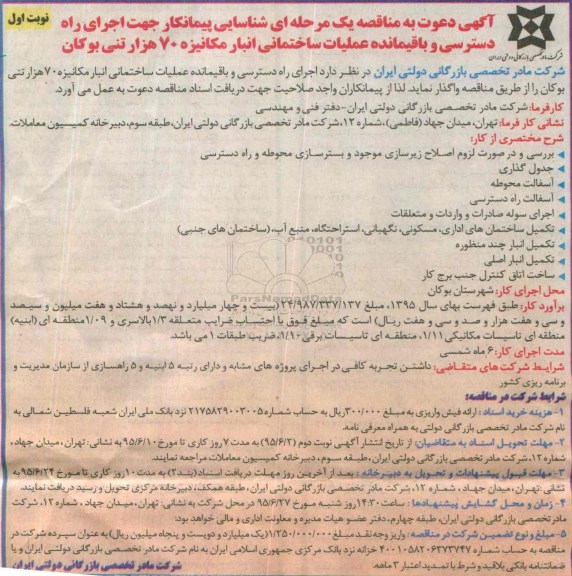 نوبت اول
آگهی دعوت به مناقصه یک مرحله ای شناسایی پیمانکار جهت اجرای راه
دسترسی و باقیمانده عملیات ساختمانی انبار مکانیزه ۷۰ هزار تنی بوکان
شرکت مادر تخصصی بازرگانی دولتی ایران
شرکت مادر تخصصی بازرگانی دولتی ایران در نظر دارد اجرای راه دسترسی و باقیمانده عملیات ساختمانی انبار مکانیزه ۷۰هزار تنی
بوکان را از طریق مناقصه واگذار نماید. لذا از پیمانکاران واجد صلاحیت جهت دریافت اسناد مناقصه دعوت به عمل می آورد.
کارفرما: شرکت مادر تخصصی بازرگانی دولتی ایران -دفتر فنی و مهندسی
نشانی کار فرما: تهران، میدان جهاد (فاطمی)، شماره ۱۲، شرکت مادر تخصصی بازرگانی دولتی ایران، طبقه سوم، دبیرخانه کمیسیون معاملات.
شرح مختصری از کار:
بررسی و در صورت لزوم اصلاح زیرسازی موجود و بسترسازی محوطه و راه دسترسی
جدول گذاری
آسفالت محوطه
آسفالت راه دسترسی
اجرای سوله صادرات و واردات و متعلقات
تکمیل ساختمان های اداری، مسکونی، نگهبانی، استراحتگاه، منبع آب، (ساختمان های جنبی)
تکمیل انبار چند منظوره
تکمیل انبار اصلی
ساخت اتاق کنترل جنب برج کار
محل اجرای کار: شهرستان بوکان
برآورد کار: طبق فهرست بهای سال ۱۳۹۵، مبلغ ۲۴/۹۸۷/۳۳۷/۱۳۷ (بیست و چهار میلیارد و نهصد و هشتاد و هفت میلیون و سیصد
و سی و هفت هزار و صد و سی و هفت ریال) است که مبلغ فوق با احتساب ضرایب متعلقه ۱/۳ بالاسری و ۱/۰۹ منطقه ای (ابنیه)
منطقه ای تاسیسات مکانیکی ۱/۱۱، منطقه ای تاسیسات برقی ۱/۱۰، ضریب طبقات ۱ می باشد.
مدت اجرای کار: ۶ ماه شمسی
شرایط شرکت های متقاضی: داشتن تجربه کافی در اجرای پروژه های مشابه و دارای رتبه ۵ ابنیه و ۵ راهسازی از سازمان مدیریت و
برنامه ریزی کشور
شرایط شرکت در مناقصه:
۱- هزینه خرید اسناد : ارائه فیش واریزی به مبلغ ۳۰۰/۰۰۰ ریال به حساب شماره ۲۱۷۵۸۲۹۰۰۳۰۰۵ نزد بانک ملی ایران شعبه فلسطین شمالی به
نام شرکت مادر تخصصی بازرگانی دولتی به همراه معرفی نامه.
۲- مهلت تحویل اسناد به متقاضیان: از تاریخ انتشار آگهی نوبت دوم (۹۵/۶/۲) به مدت ۷ روز کاری تا مورخ ۹۵/۶/۱۰ به نشانی: تهران، میدان جهاد،
شماره ۱۲، شرکت مادر تخصصی بازرگانی دولتی ایران، طبقه سوم ، دبیرخانه کمیسیون معاملات مراجعه نمایند.
۳- مهلت قبول پیشنهادات و تحویل به دبیرخانه : بعد از آخرین روز مهلت دریافت اسناد (بند۲) به مدت ۱۰ روز کاری تا مورخ ۹۵/۶/۲۴ به
نشانی :تهران، میدان جهاد ، شماره ۱۲، شرکت مادر تخصصی بازرگانی دولتی ایران، طبقه همکف، دبیرخانه مرکزی تحویل و رسید دریافت نمایند.
۴- زمان و محل گشایش پیشنهادها : ساعت ۱۴:۳۰ روز شنبه مورخ ۹۵/۶/۲۷ در محل شرکت به نشانی: تهران، میدان جهاد ، شماره ۱۲، شرکت
مادر تخصصی بازرگانی دولتی ایران، طبقه چهارم، دفتر عضو هیات مدیره و معاونت اداری و مالی خواهد بود:
۵- مبلغ و نوع تضمین شرکت در مناقصه: واریز وجه نقد مبلغ ۱/۲۵۰/۰۰۰/۰۰۰ (یک میلیارد و دویست و پنجاه میلیون ریال) به عنوان سپرده شرکت در
مناقصه به حساب شماره ۴۰۰۱۰۵۸۲۰۶۳۷۳۷۴۷ خزانه نزد بانک مرکزی جمهوری اسلامی ایران به نام شرکت مادر تخصصی بازرگانی دولتی ایران و یا
ضمانتنامه بانکی بلاقید و شرط با تمدید اعتبار ۳ ماهه.
شرکت مادر تخصصی بازرگانی دولتی ایران